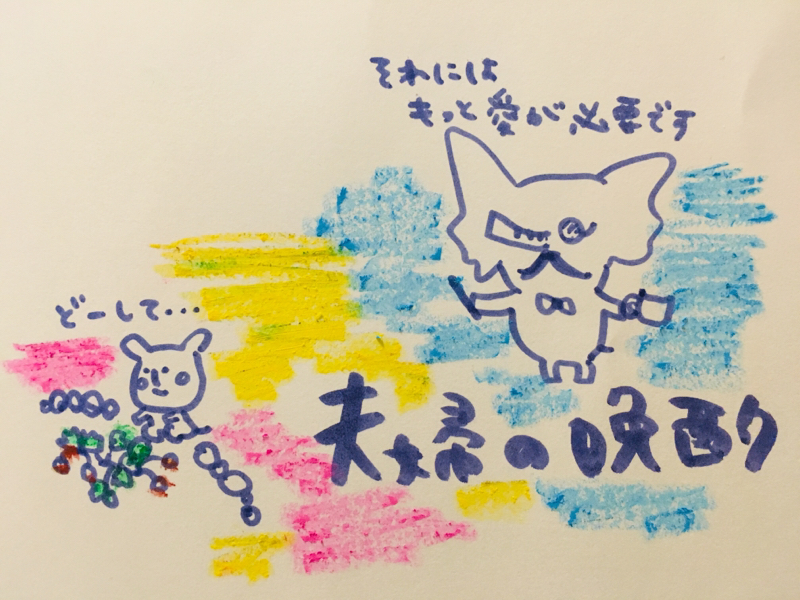 それには
もっと愛が必要です
どーして・・・
夫婦の晩酌